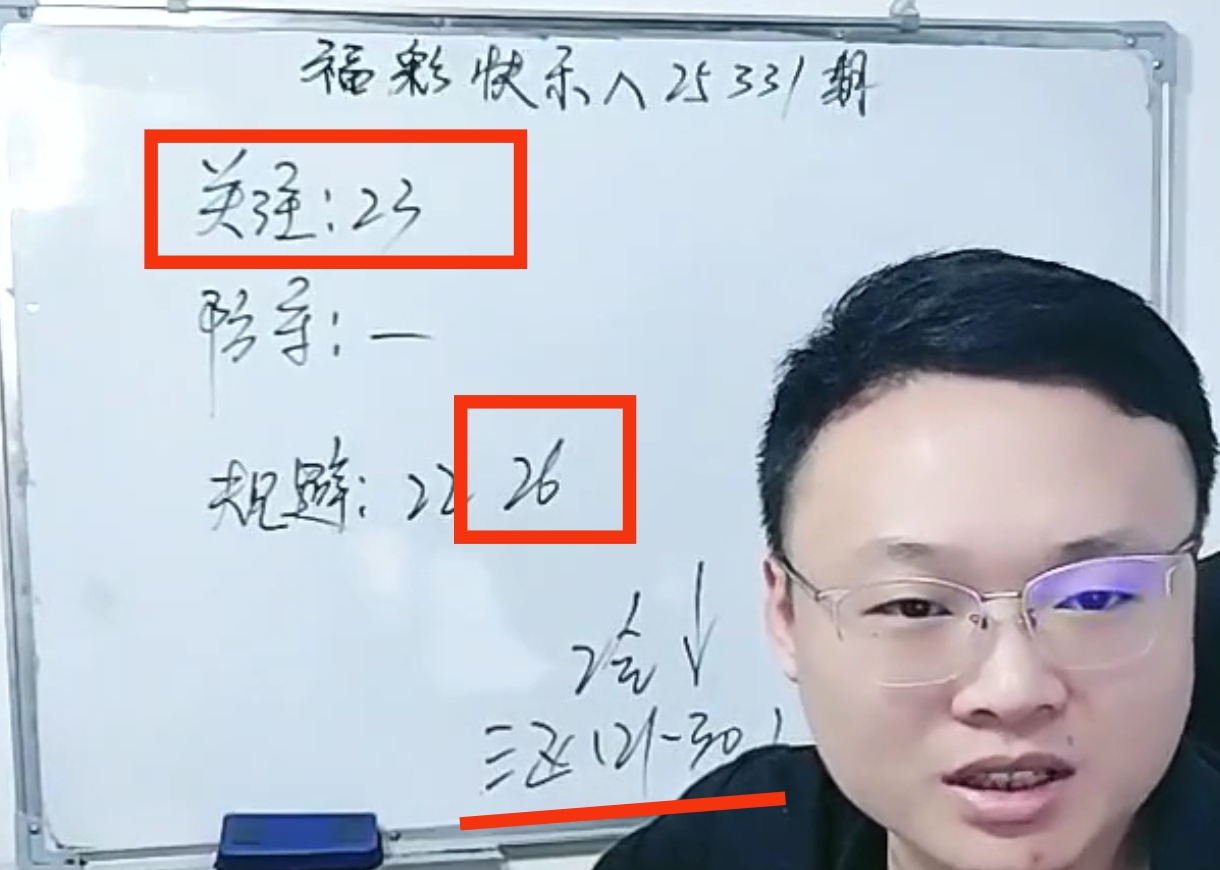 福彩快乐八25331期
关注：23
防守：一
规避：22 26
冷↓
三区(21-30)